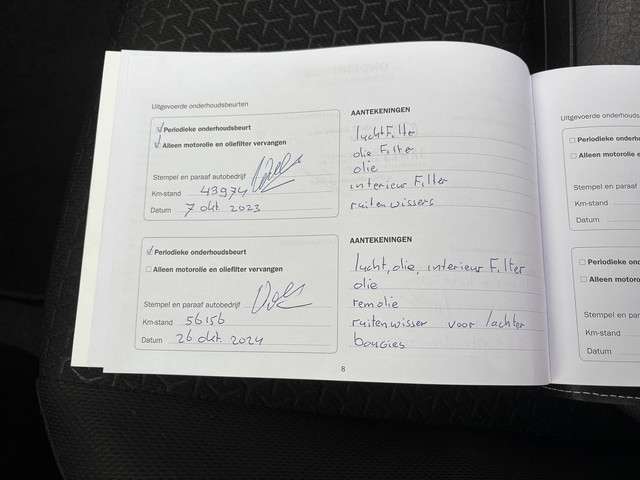 Uitgevoerde onderhoudsbeurten
Periodieke onderhoudsbeurt
Alleen motorolie en oliefilter vervangen
Stempel en paraaf autobedrijf
Km-stand 43974
Datum 7 okt 2023
AANTEKENINGEN
luchtFilter
olie Filter
olie
interieur Filter
ruitenwissers
Periodieke onderhoudsbeurt
Alleen motorolie en oliefilter vervangen
Stempel en paraaf autobedrijf
Km-stand 56156
Datum 26 okt 2024
AANTEKENINGEN
lucht, olie, interieur Filter
olie
remolie
ruitenwisser voor/achter
bougies
8
Uitgevoerde onderhouds
Periodieke onderh
Alleen motorolie e
Stempel en paraaf
Km-stand
Datum
Periodieke ond
Alleen motoro
Stempel en par
Km-stand
Datum